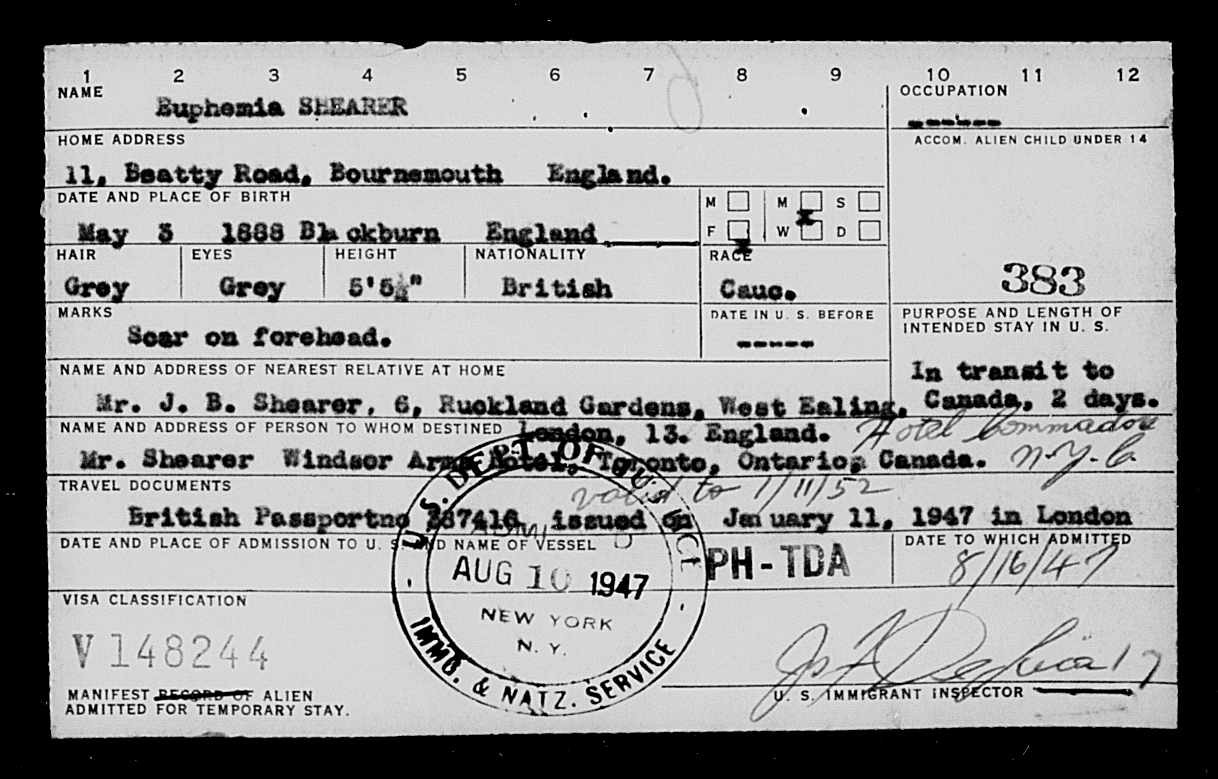 1 2 3 4 5 6 7 8 9 10 11 12
NAME
OCCUPATION
Euphemia SHEARER
------
HOME ADDRESS
ACCOM. ALIEN CHILD UNDER 14
11, Beatty Road, Bournemouth England.
DATE AND PLACE OF BIRTH
M M S
May 3 1888 Blackburn England
F x W x D
HAIR EYES HEIGHT NATIONALITY RACE
383
Grey Grey 5'5½" British Cauc.
MARKS
DATE IN U. S. BEFORE
PURPOSE AND LENGTH OF
INTENDED STAY IN U. S.
Scar on forehead.
-----
NAME AND ADDRESS OF NEAREST RELATIVE AT HOME
In transit to
Mr. J. B. Shearer, 6, Ruckland Gardens, West Ealing,
Canada, 2 days.
NAME AND ADDRESS OF PERSON TO WHOM DESTINED
London, 13. England.
Hotel Commadore
Mr. Shearer Windsor Arms Hotel, Toronto, Ontario, Canada.
N.Y.C
TRAVEL DOCUMENTS
valid to 1/11/52
British Passportno 387416 issued on January 11, 1947 in London
DATE AND PLACE OF ADMISSION TO U. S. AND NAME OF VESSEL
DATE TO WHICH ADMITTED
U. S. DEPT OF JUSTICE
AUG 10 1947
NEW YORK
N. Y.
IMMG. & NATZ. SERVICE
PH-TDA
8/16/47
VISA CLASSIFICATION
V 148244
MANIFEST RECORD OF ALIEN
ADMITTED FOR TEMPORARY STAY.
U. S. IMMIGRANT INSPECTOR